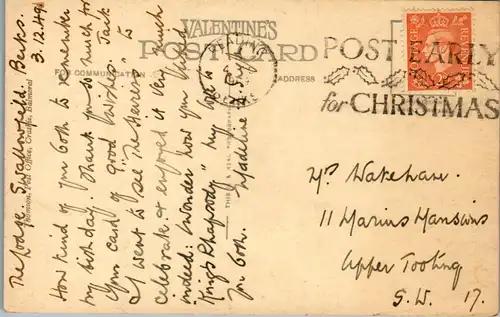 VALENTINE'S
POST CARD
FOR COMMUNICATION
ADDRESS
POST EARLY
for CHRISTMAS
POSTAGE
REVENUE
The Lodge, Swallowfield, Berks.
3.12.49.
How kind of you both to remember
my birthday. Thank you so much for
your card of good wishes. Jack
& I went to see "The Heiress" to
celebrate & enjoyed it very much
indeed: I wonder how you liked
King's Rhapsody". My love to
you both.
Madeline
Mrs Wakeham.
11 Marius Mansions
Upper Tooting
S.W. 17.
Post Office, Crathie, Balmoral